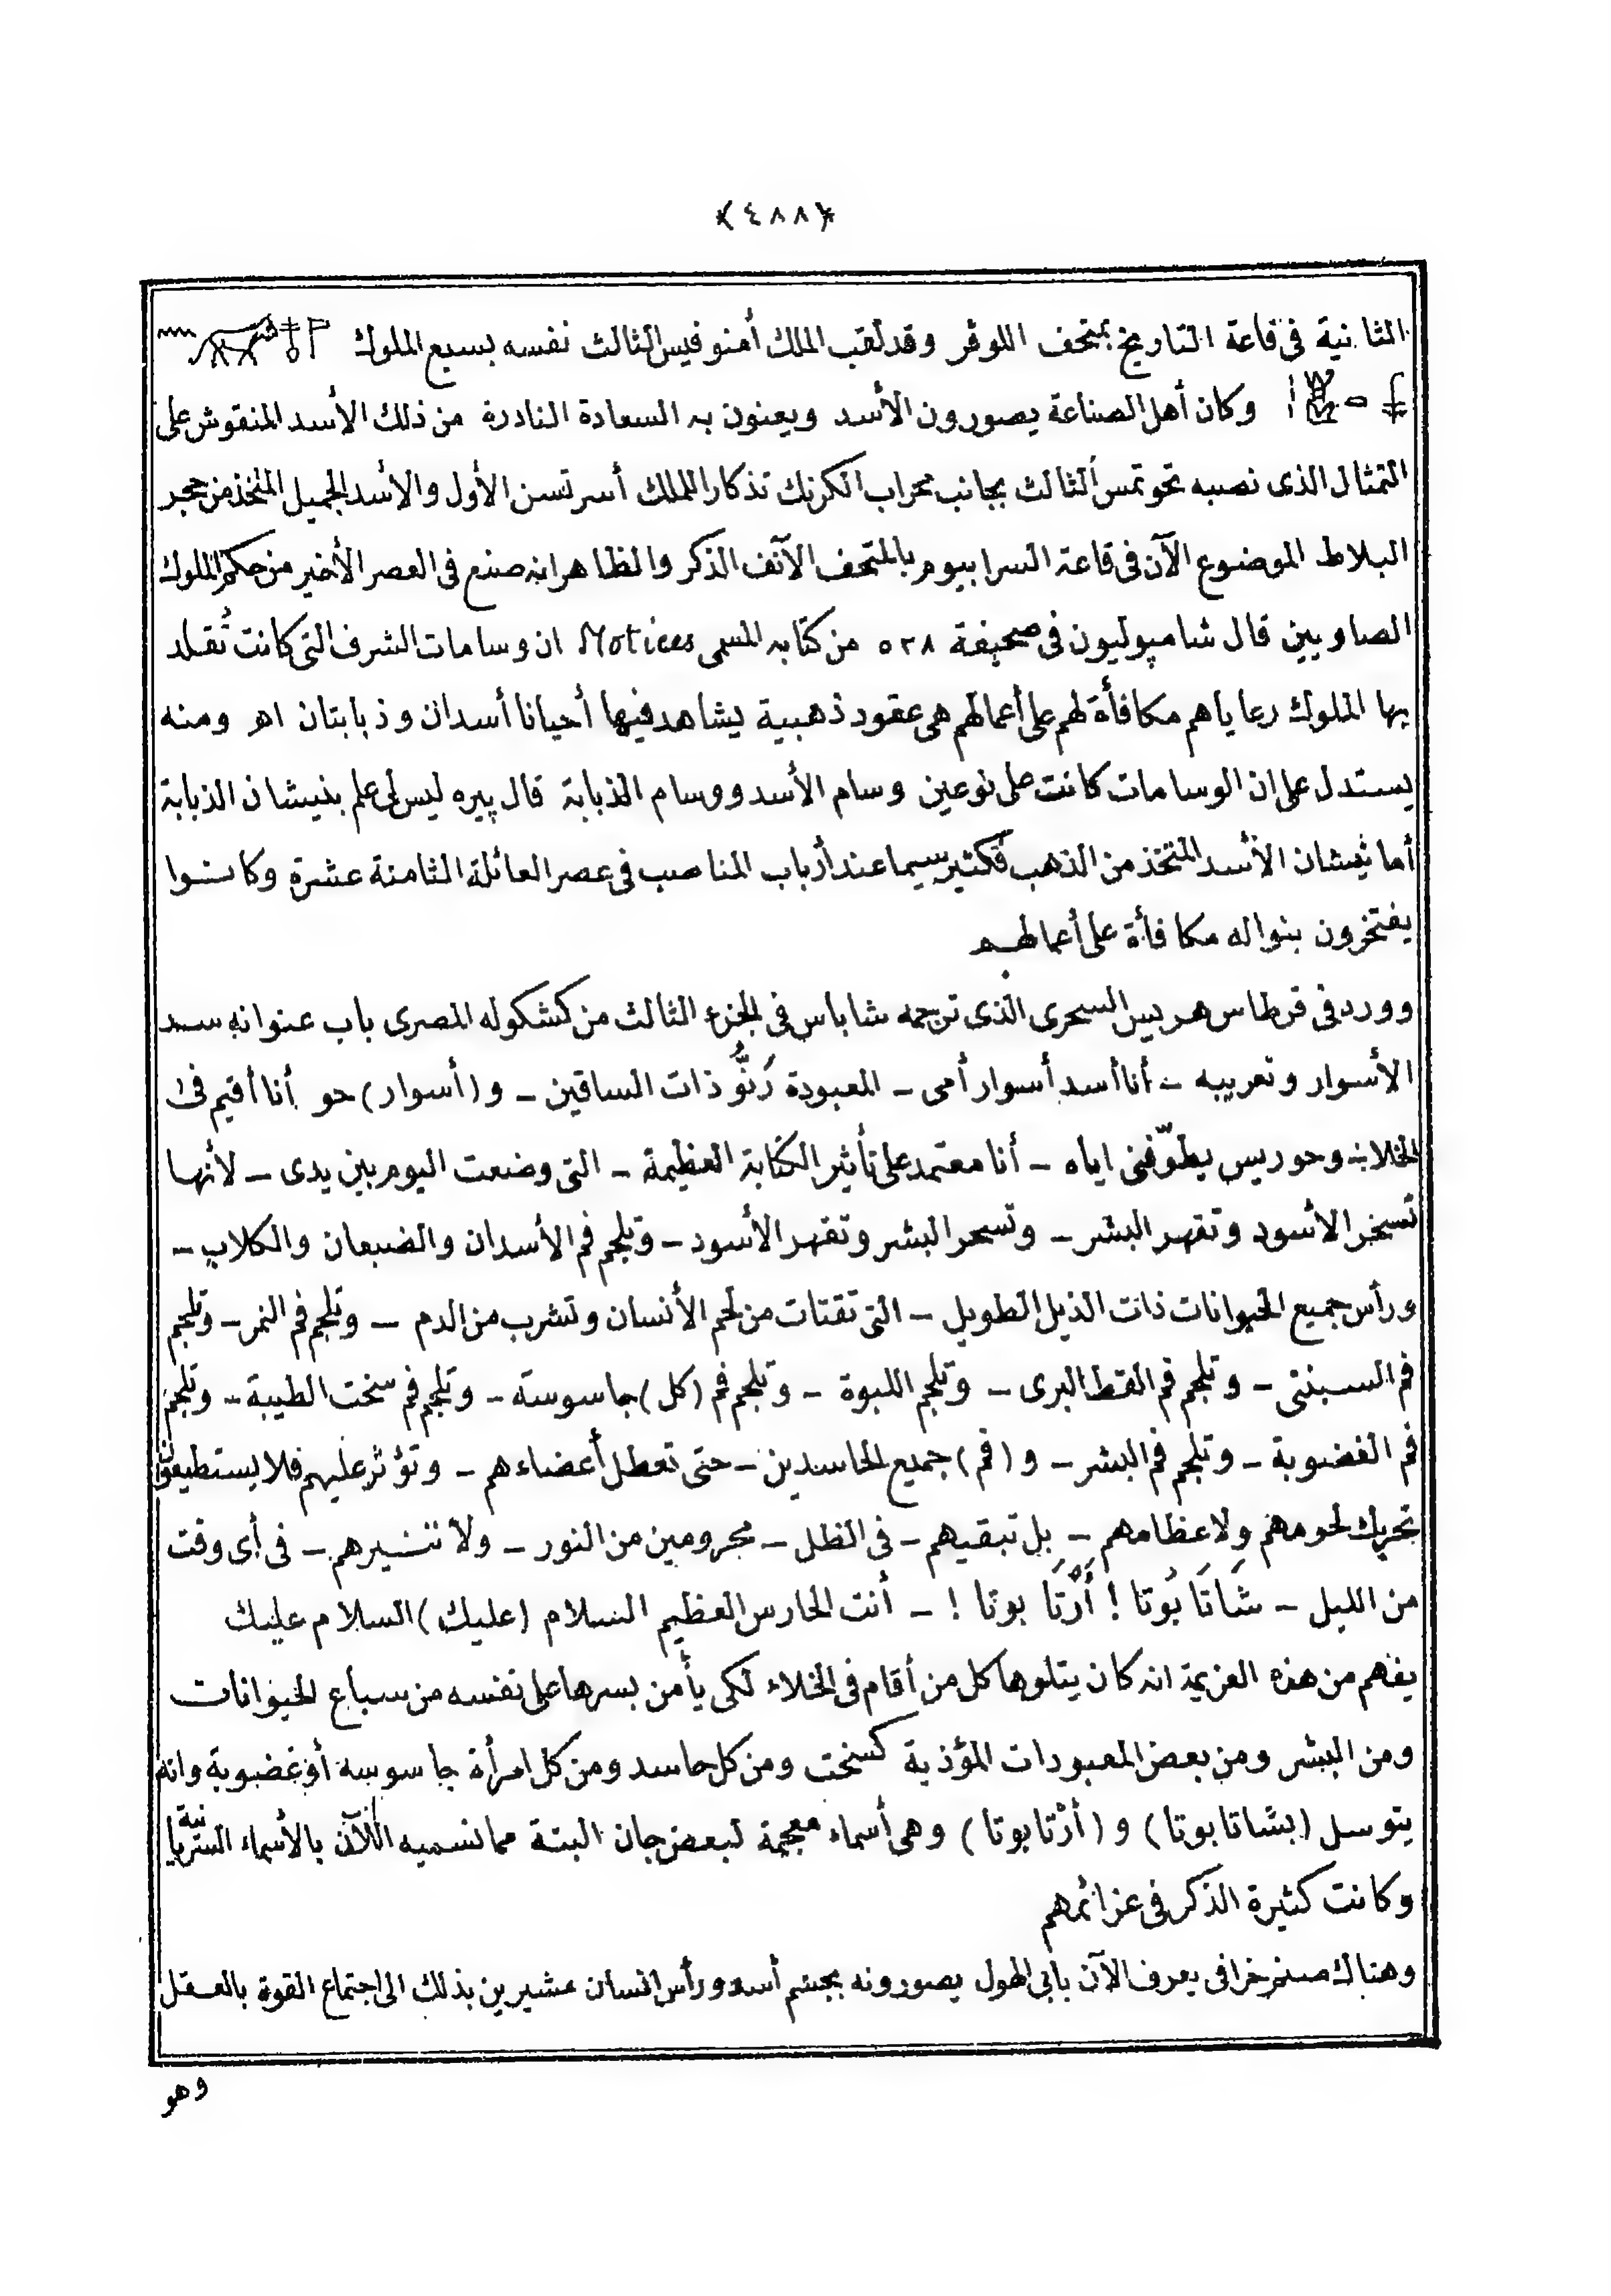 ﴿٤٨٨﴾
الثانية فى قاعة التاريخ بمتحف اللوڤر وقد لقب الملك أمنوفيس الثالث نفسه بسبع الملوك
وكان أهل الصناعة يصورون الأسد ويعنون به السعادة النادرة من ذلك الأسد المنقوش على
التمثال الذى نصبه تحوتمس الثالث بجانب محراب الكرنك تذكارا للملك أسرتسن الأول والأسد الجميل المتخذ من حجر
البلاط الموضوع الآن فى قاعة السرابيوم بالمتحف الآنف الذكر والظاهر انه صنع فى العصر الأخير من حكم الملوك
الصاويين قال شامپوليون فى صحيفة ٥٢٨ من كتابه المسمى Notices ان وسامات الشرف التى كانت تُقلد
بها الملوك رعاياهم مكافأة لهم على أعمالهم هى عقود ذهبية يشاهد فيها أحيانا أسدان وذبابتان اهـ ومنه
يستدل على ان الوسامات كانت على نوعين وسام الأسد ووسام الذبابة قال پيره ليس لى علم بنيشان الذبابة
أما نيشان الأسد المتخذ من الذهب فكثير سيما عند أرباب المناصب فى عصر العائلة الثامنة عشرة وكانوا
يفتخرون بنواله مكافأة على أعمالهم
وورد فى قرطاس هريس السحرى الذى ترجمه شاباس فى الجزء الثالث من كشكوله المصرى باب عنوانه سد
الأسوار وتعريبه - أنا أسد أسوار أمى - المعبودة رَنُّو ذات الساقين - و(أسوار) حو أنا أقيم فى
الخلابة وحوريس يطوّفنى اياه - أنا معتمد على تأثير الكتابة العظيمة - التى وضعت اليوم بين يدى - لأنها
تسخر الأسود وتقهر البشر - وتسحر البشر وتقهر الأسود - وتلجم فم الأسدان والضبعان والكلاب -
ورأس جميع الحيوانات ذات الذيل الطويل - التى تقتات من لحم الأنسان وتشرب من الدم - وتلجم فم النمر - وتلجم
فم السبنتى - وتلجم فم القط البرى - وتلجم اللبوة - وتلجم فم (كل) جاسوسته - وتلجم فم سخت الطيبة - وتلجم
فم الغضوبة - وتلجم فم البشر - و(فم) جميع الحاسدين - حتى تعطل أعضاءهم - وتؤثر عليهم فلا يستطيعون
تحريك لحومهم ولا عظامهم - بل تبقيهم - فى الظل - محرومين من النور - ولا تنسيرهم - فى أى وقت
من الليل - شَاتَا بُوتا ! أَرْتَا بوتا ! - أنت الحارس العظيم السلام (عليك) السلام عليك
يفهم من هذه العزيمة انه كان يتلوها كل من أقام فى الخلاء لكى يأمن بسرها على نفسه من سباع الحيوانات
ومن البشر ومن بعض المعبودات المؤذية كسخت ومن كل حاسد ومن كل امرأة جاسوسه أو غضوبة وانه
يتوسل (بشاتا بوتا) و (أرْتا بوتا) وهى أسماء معجمة لبعض جان البتة مما نسميه الآن بالأسماء السريانية
وكانت كثيرة الذكر فى عزائمهم
وهناك صنم خرافى يعرف الآن بأبى الهول يصورونه بجسم أسد ورأس انسان مشيرين بذلك الى اجتماع القوة بالعقل
وهو